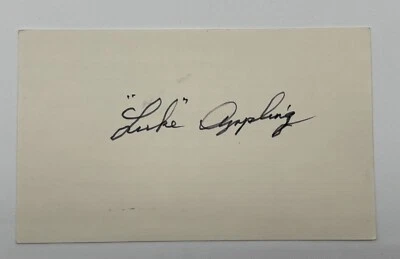 "Luke" Appling